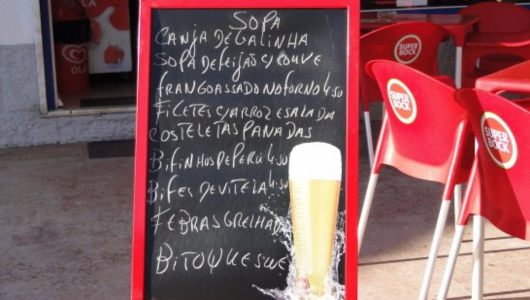 SOPA
CANJA DE GALINHA
SOPA DE FEIJÃO C/ COUVE
FRANGO ASSADO NO FORNO 4.50
FILETES C/ ARROZ E SALADA
COSTELETAS PANADAS
BIFINHOS DE PERU 4.50
BIFES DE VITELA 4.50
FEBRAS GRELHADA
BITOQUES
SUPER BOCK
SUPER BOCK
SUPER BOCK
OLÁ